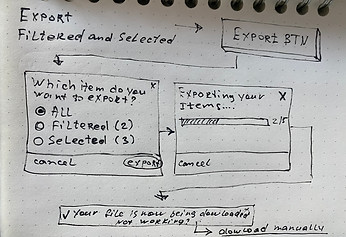 Export
Filtered and Selected
Export BTN
Which item do you x
want to export?
All
Filtered (2)
Selected (3)
cancel export
Exporting your x
Items....
2/5
cancel
✓ Your file is now being dowloaded
not working?
dowload manually